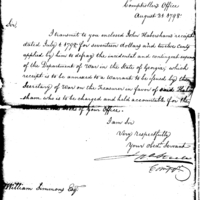 Comptroller's Office
August 21 1798
Sir
I transmit to you enclosed John Habersham's receipt
dated July 1 1798 for seventeen dollars and twelve Cents
applied by him to defray the incidental and contingent expences
of the Department of War in the State of Georgia, which
receipt is to be annexed to a Warrant to be issued by the
Secretary of War on the Treasurer in favor of said Haber
sham who is to be charged and held accountable for the
of your Office.
I am Sir
Very respectfully
Your Obed. Servant
William Simmons Esqr